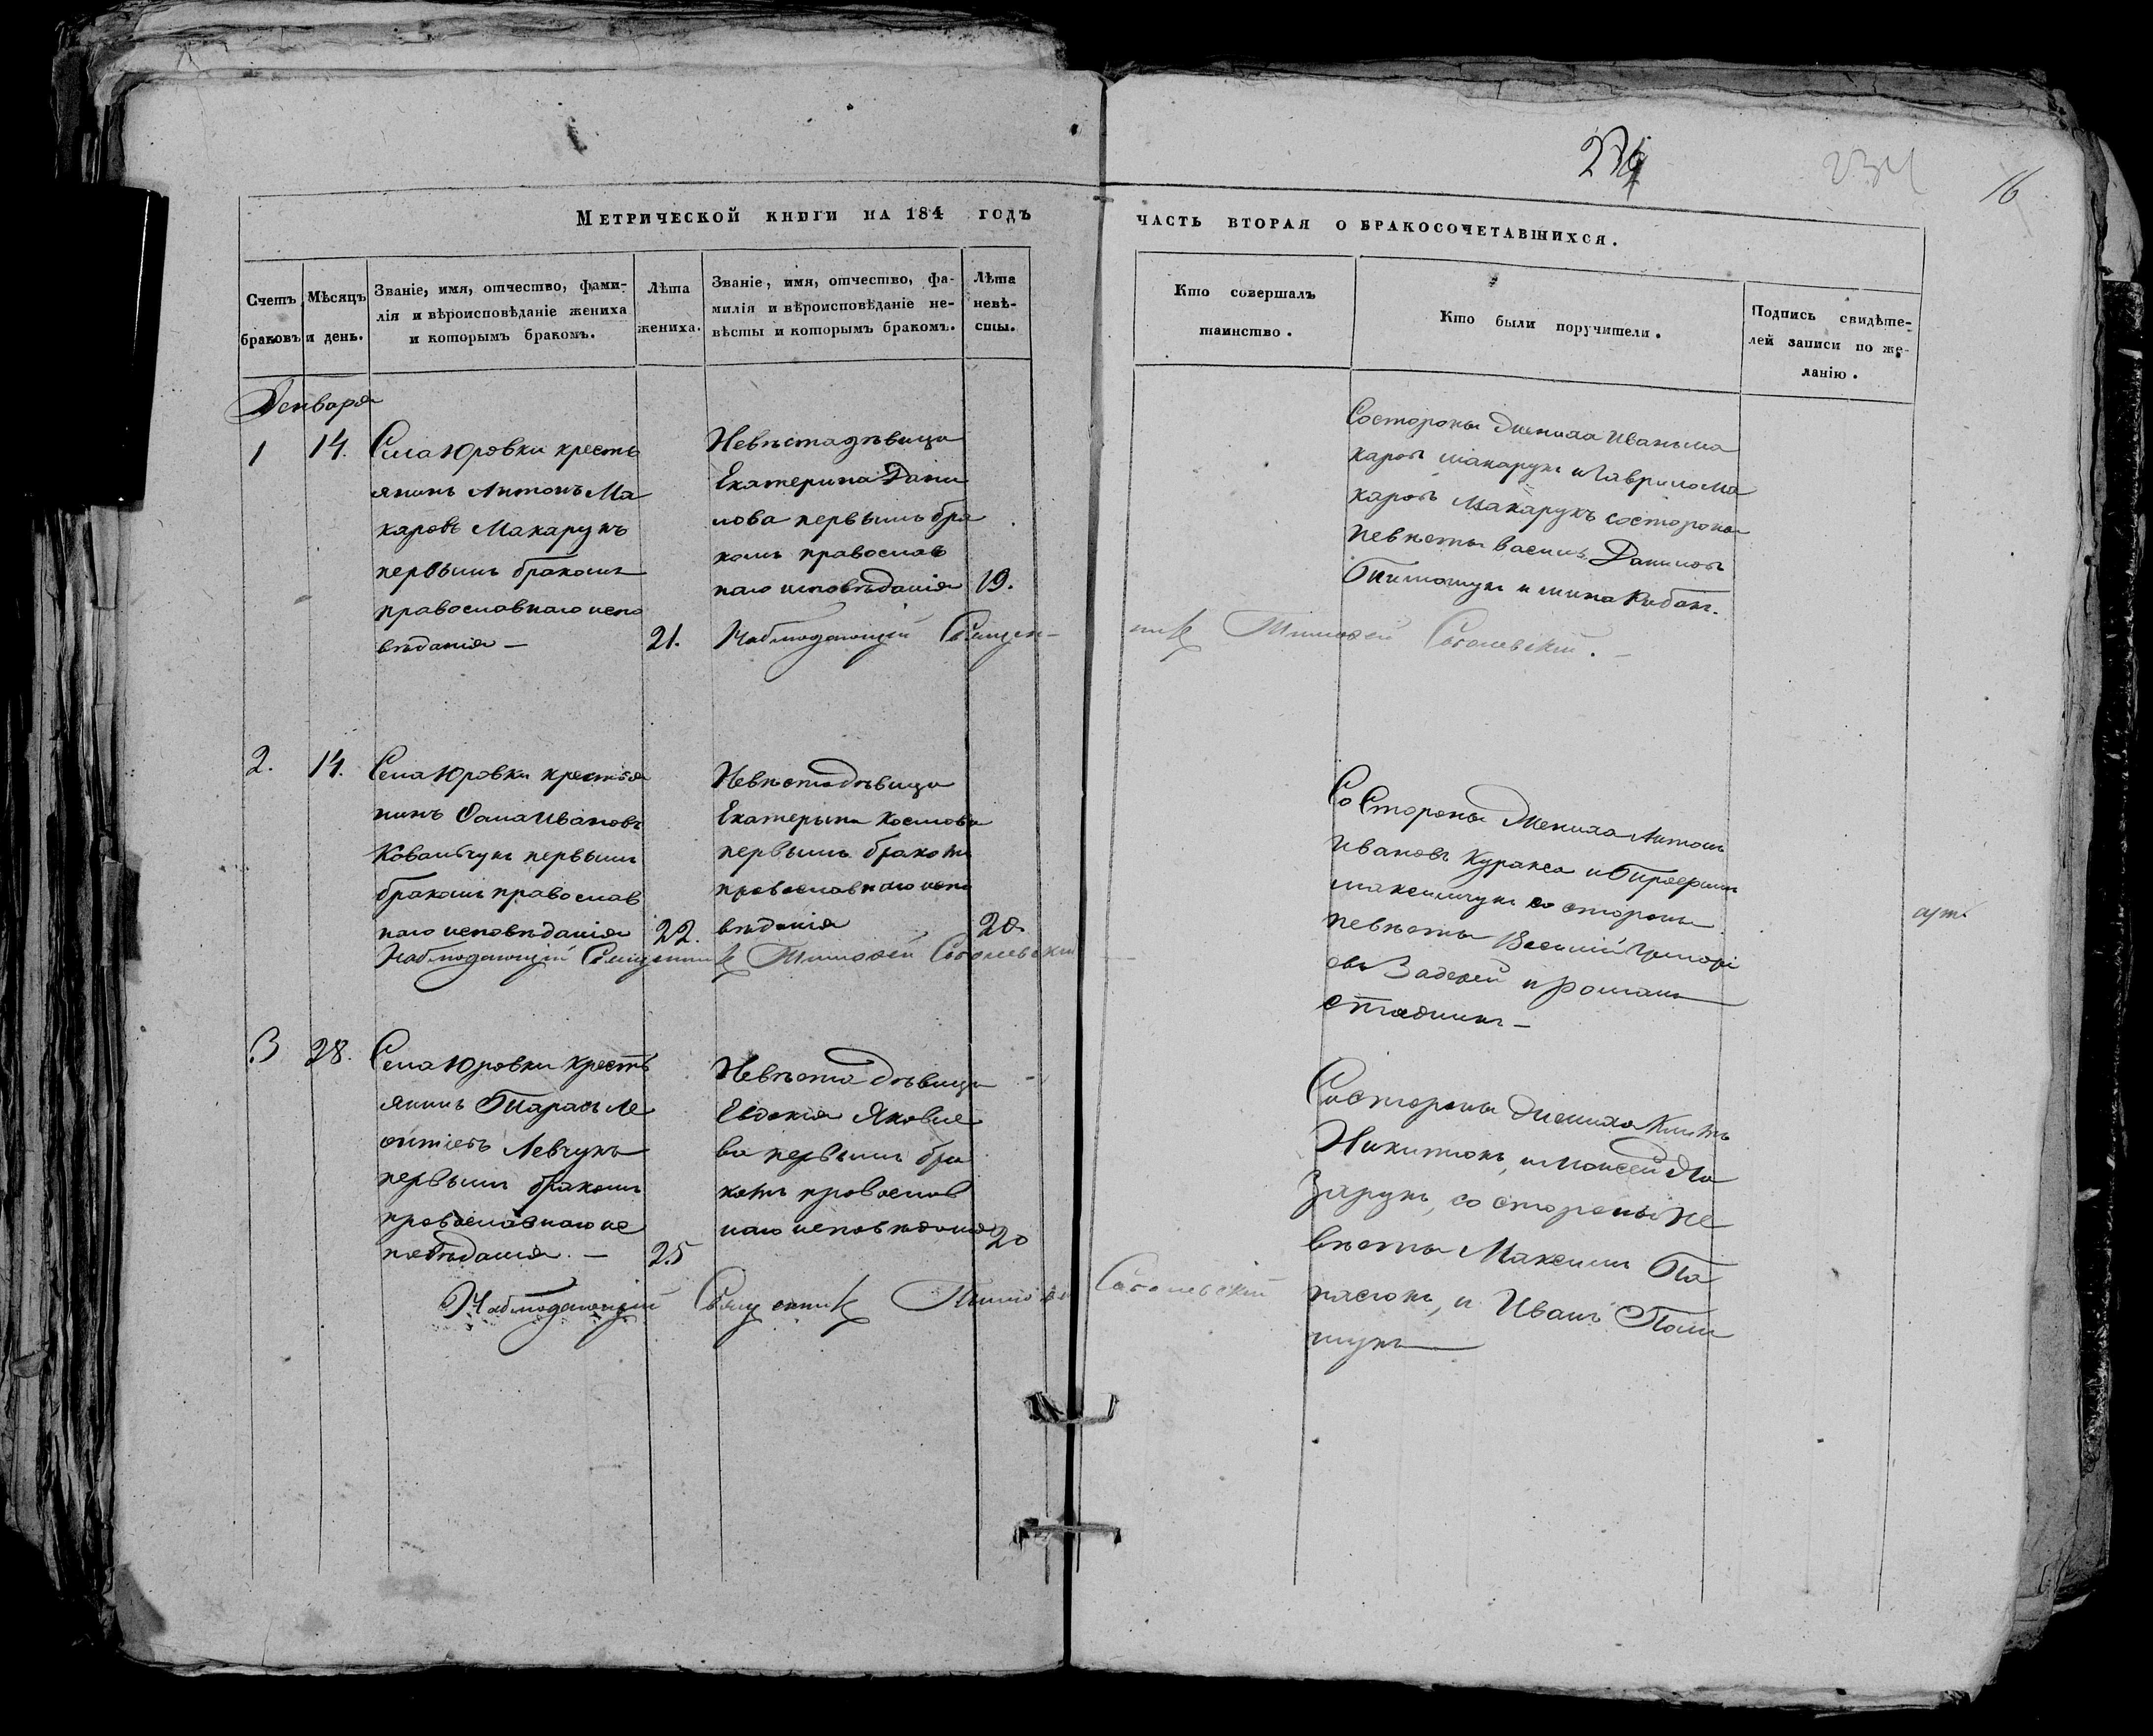 234
234
16
Метрической книги на 184 годъ
часть вторая о бракосочетавшихся.
Счетъ браковъ
Мѣсяцъ и день.
Званіе, имя, отчество, фами-
лія и вѣроисповѣданіе жениха
и которымъ бракомъ.
Лѣта
жениха.
Званіе, имя, отчество, фа-
милія и вѣроисповѣданіе не-
вѣсты и которымъ бракомъ.
Лѣта
невѣ-
сты.
Кто совершалъ
таинство.
Кто были поручители.
Подпись свидѣте-
лей записи по же-
ланію.
Генваря
1 14.
Села Юровки кресть
янинъ Антонъ Ма
каровъ Макарукъ
первымъ бракомъ
православнаго испо
вѣданія —
21.
Невѣста дѣвица
Екатерина Дани
лова первымъ бра
комъ православ
наго исповѣданія
19.
Состороны Жениха Иванъ Ма
каровъ Макарукъ и Гаврило Ма
каровъ Макарукъ состороны
невѣсты Василь Даниловъ
Тимощук и
Наблюдающій Священ-
никъ Тимофей Соболевскій. —
2. 14.
Села Юровки крестья
нинъ Фама Ивановъ
Ковальчукъ первымъ
бракомъ православ
наго исповѣданія
22.
Невѣста дѣвица
Екатерина Космова
первымъ бракомъ
православнаго испо
вѣданія
20
Со Стороны Жениха Антонъ
Ивановъ Кураксa и
Максимчукъ со стороны
невѣсты Василій Григорі
евъ и Романъ
—
Наблюдающій Священникъ Тимофей Соболевскій
3 28.
Села Юровки кресть
янинъ Тарасъ Ле
онтіевъ Левчукъ
первымъ бракомъ
православнаго ис
повѣданія. —
25
Невѣста дѣвица
Евдокія Яковле
ва первымъ бра
комъ православ
наго исповѣданія
20
Состороны Жениха Климъ
Никитюкъ, и Моисей Ма
зарукъ, со стороны не
вѣсты Максимъ Па
насюкъ, и Иванъ Поли
щукъ
Наблюдающій Священникъ Тимофей Соболевскій